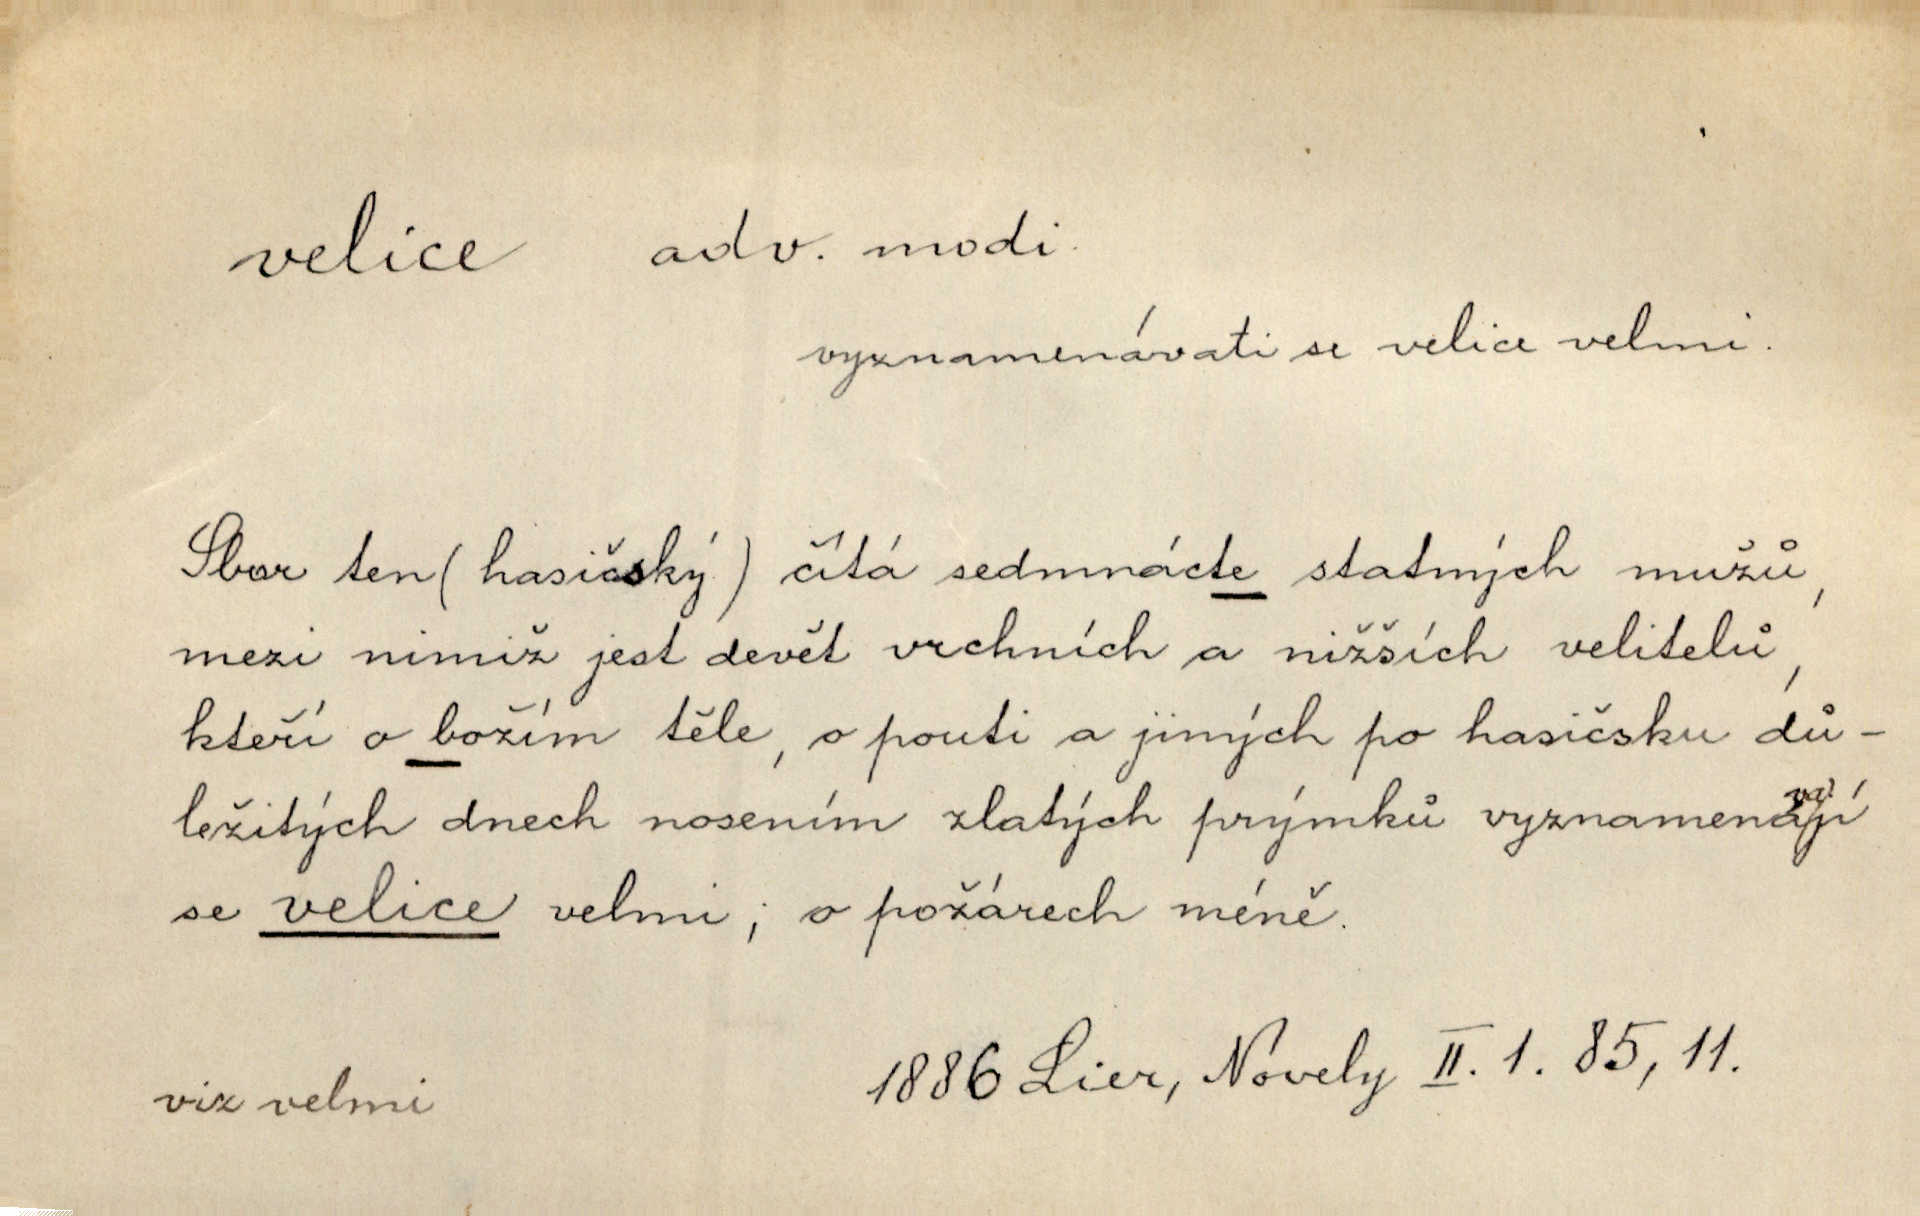 velice adv. modi.
vyznamenávati se velice velmi.
Sbor ten (hasičský) čítá sedmnácte statných mužů,
mezi nimiž jest devět vrchních a nižších velitelů,
kteří o božím těle, o pouti a jiných po hasičsku dů-
ležitých dnech nosením zlatých prýmků vyznamenávají
se velice velmi; o požárech méně.
1886 Lier, Novely II. 1. 85, 11.
viz velmi